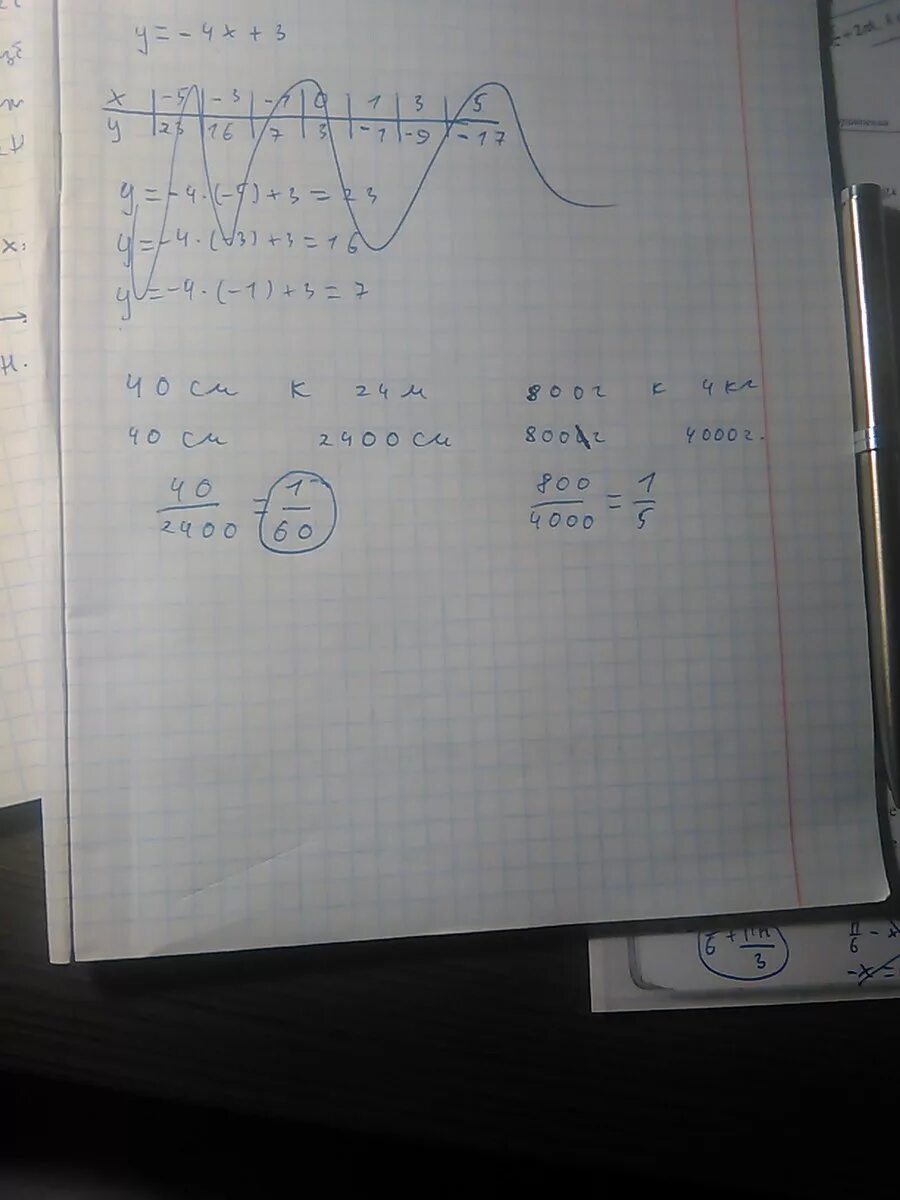 y = -4x + 3
x | -5 | -3 | -1 | 0 | 1 | 3 | 5
y | 23 | 16 | 7 | 3 | -1 | -9 | -17
y = -4 · (-5) + 3 = 23
y = -4 · (-3) + 3 = 16
y = -4 · (-1) + 3 = 7
40 см к 24 м 800г к 4 кг
40 см 2400 см 800г 4000г.
40/2400 = 1/60 800/4000 = 1/5
x:
н.
π/6 - x
-x =